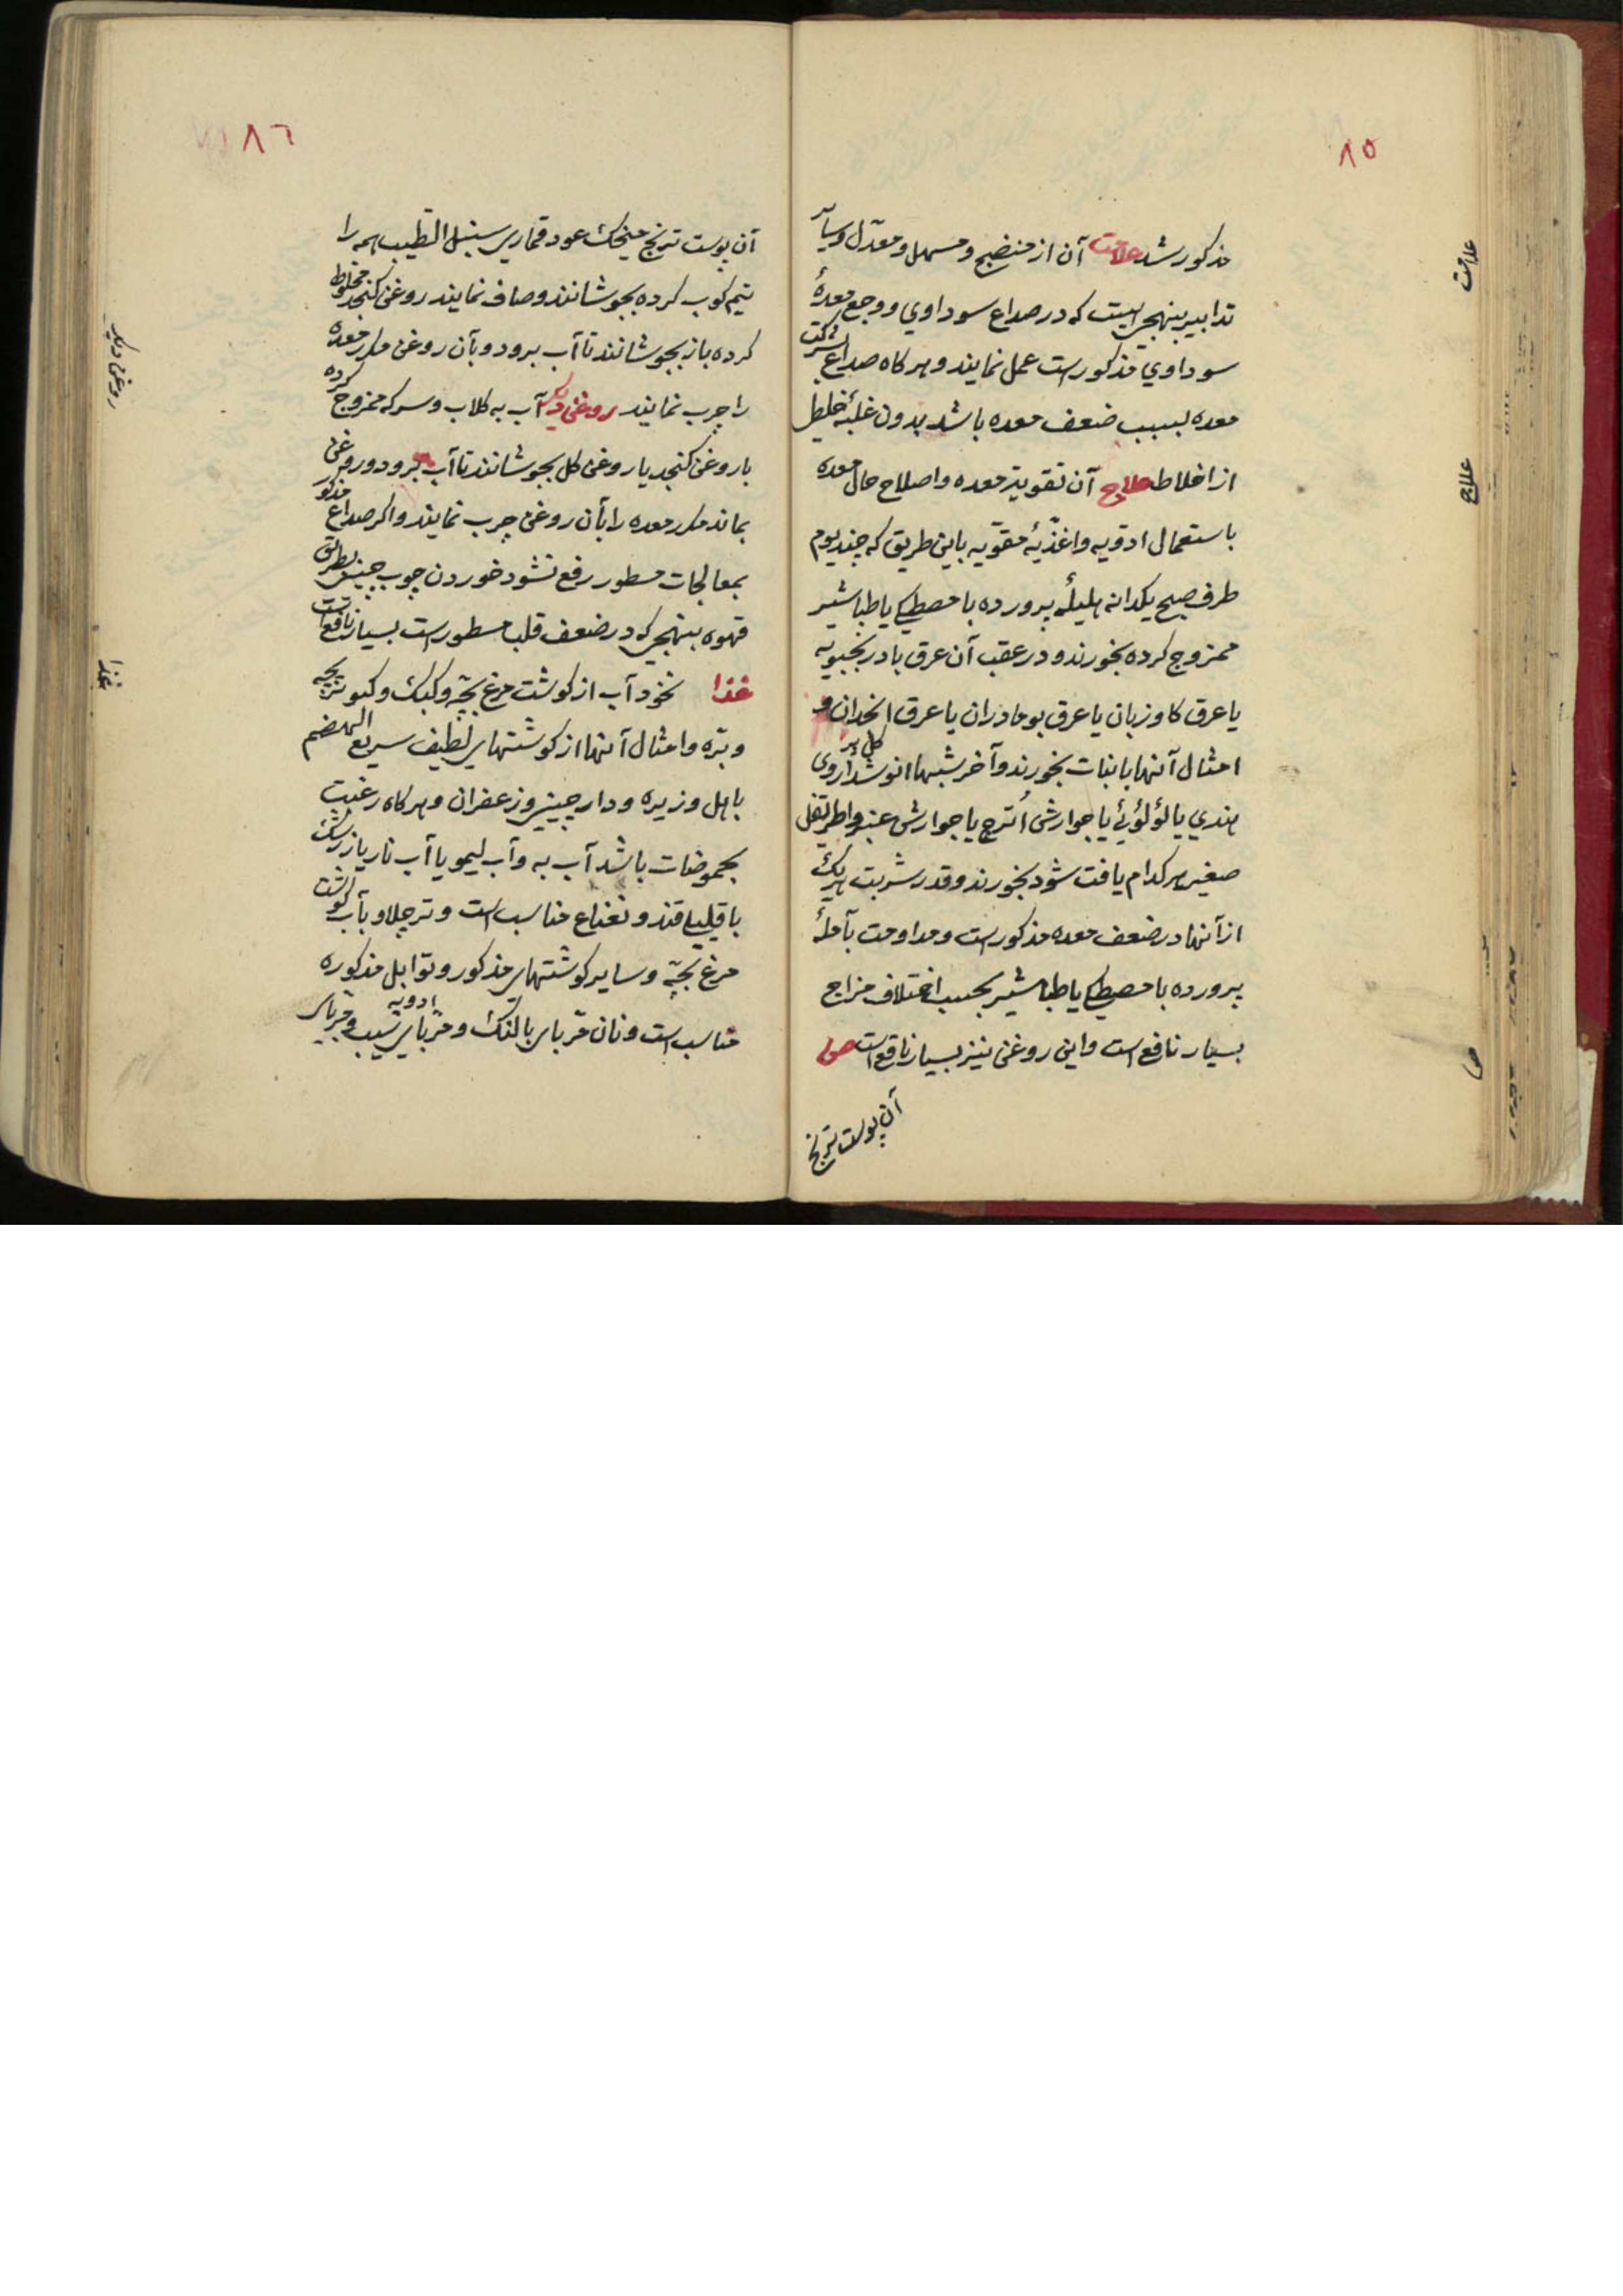 ۸۵
مذکور شد علامت آن از منضج و مسهل و معدّل و سایر
تدابیر بنهجی است که در صداع سوداوي و وجع معدهٔ
سوداوي مذکور است عمل نمایند و هر کاه صداع بشرکت
معده بسبب ضعف معده باشد بدون غلبهٔ خلطی
از اخلاط علاج آن تقویة معده و اصلاح حال معده
باستعمال ادویه و اغذیهٔ مقوّیه باین طریق که چند یوم
طرف صبح یکدانه هلیلهٔ پرورده با مصطکی یا طباشیر
ممزوج کرده بخورند و در عقب آن عرق بادرنجبویه
یا عرق کاوزبان یا عرق بومادران یا عرق انجدان و
امثال آنها با نبات بخورند و آخر شبها انوشداروی
هندي یا لؤلؤئي یا جوارش اُترج یا جوارش عنبر و اطریفل
صغیر هر کدام یافت شود بخورند و قدر شربت هریک
از آنها در ضعف معده مذکور است و مداومت بآملهٔ
پرورده با مصطکی یا طباشیر بحسب اختلاف مزاج
بسیار نافع است و این روغن نیز بسیار نافع است ص
آن پوست ترنج
علامت
علاج
ص
۸٦
آن پوست ترنج میخک عود قماری سنبل الطیب همه را
نیم کوب کرده بجوشانند و صاف نمایند روغن کنجد مخلوط
کرده باز بجوشانند تا آب برود و بآن روغن مکرر معده
را چرب نمایند روغن دیکر آب به کلاب و سرکه ممزوج کرده
با روغن کنجد یا روغن کل بجوشانند تا آب برود و روغن
بماند مکرر معده را بآن روغن چرب نمایند و اکر صداع مذکور
بمعالجات مسطور رفع نشود خوردن چوب چینی بطریق
قهوه بنهجی که در ضعف قلب مسطور است بسیار نافع است
غذا نخود آب از کوشت مرغ بچه و کبک و کبوتر بچه
و بره و امثال آنها از کوشتهای لطیف سریع الهضم
با هل و زیره و دارچینی و زعفران و هر کاه رغبت
بحموضات باشد آب به و آب لیمو یا آب نار یا زرشک
با قلیلی قند و نعناع مناسب است و تر چلاو بآب کوشت
مرغ بچّه و سایر کوشتهای مذکور و توابل مذکوره
مناسب است و نان مربای بالنک و مربای سیب و مربای
ادویه
روغن دیکر
غذا